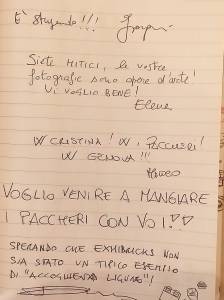 È stupendo!!!
Siete MITICI, le vostre
fotografie sono opere d'arte!
VI VOGLIO BENE!
Elena
W CRISTINA! W I PACCHERI!
W GENOVA!!!
VOGLIO VENIRE A MANGIARE
I PACCHERI CON VOI!!
SPERANDO CHE EXHIBRICKS NON
SIA STATO UN TIPICO ESEMPIO
DI "ACCOGLIENZA LIGURE"!